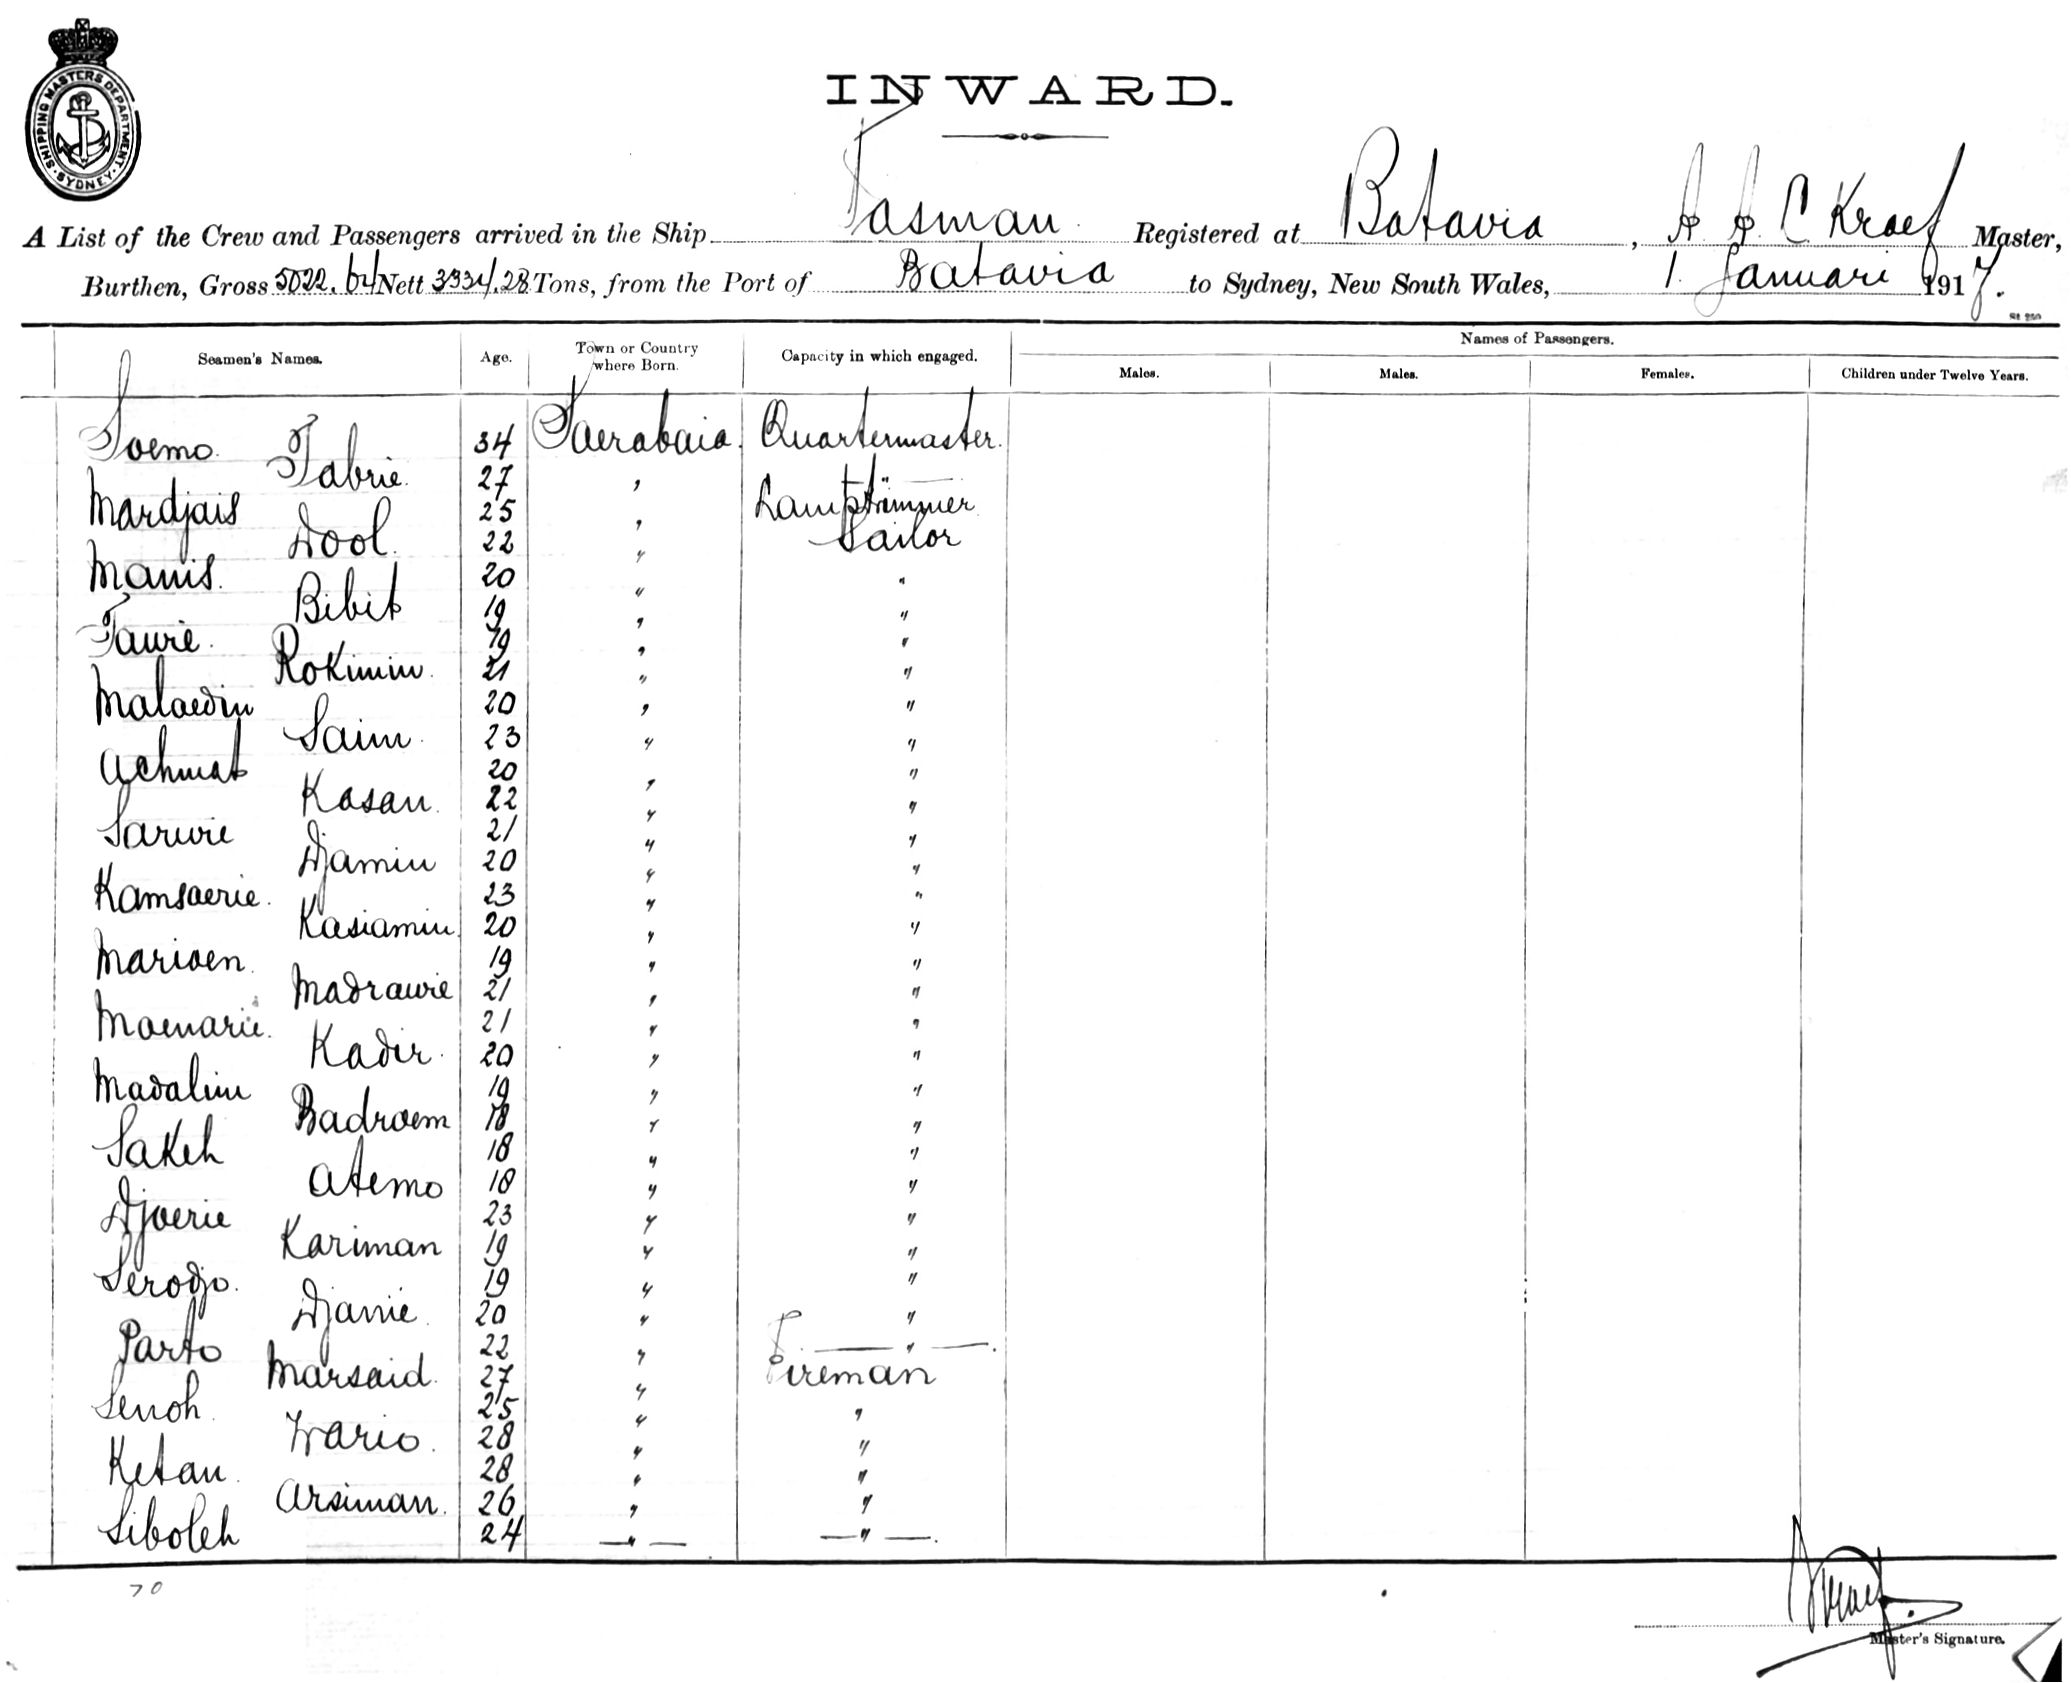 SHIPPING MASTERS DEPARTMENT
SYDNEY
INWARD.
A List of the Crew and Passengers arrived in the Ship Tasman Registered at Batavia, A. A. C Kraef Master,
Burthen, Gross 5022.64 Nett 3334.28 Tons, from the Port of Batavia to Sydney, New South Wales, 1. Januari 1917.
Names of Passengers.
Seamen's Names. Age. Town or Country where Born. Capacity in which engaged. Males. Males. Females. Children under Twelve Years.
Soemo. 34 Saerabaia. Quartermaster.
Tabrie. 27 "
Mardjais 25 " Lamptrimmer
Dool. 22 " Sailor
Manis. 20 " "
Bibit 19 " "
Tawie. 19 " "
Rokimin. 21 " "
Maloedin 20 " "
Saim. 23 " "
Achmat 20 " "
Kasan. 22 " "
Sarwie 21 " "
Djamin 20 " "
Kamsaerie. 23 " "
Kasiamin. 20 " "
Marioen. 19 " "
Madrawie 21 " "
Moenarie. 21 " "
Kadir. 20 " "
Madalim 19 " "
Badroem 18 " "
Sakeh 18 " "
Atemo 18 " "
Djoerie 23 " "
Kariman 19 " "
Serodjo. 19 " "
Djanie. 20 " "
Parto 22 " "
Marsaid. 27 " Fireman
Senoh. 25 " "
Wario. 28 " "
Ketan. 28 " "
Arsiman. 26 " "
Siboleh 24 " "
70
Master's Signature.